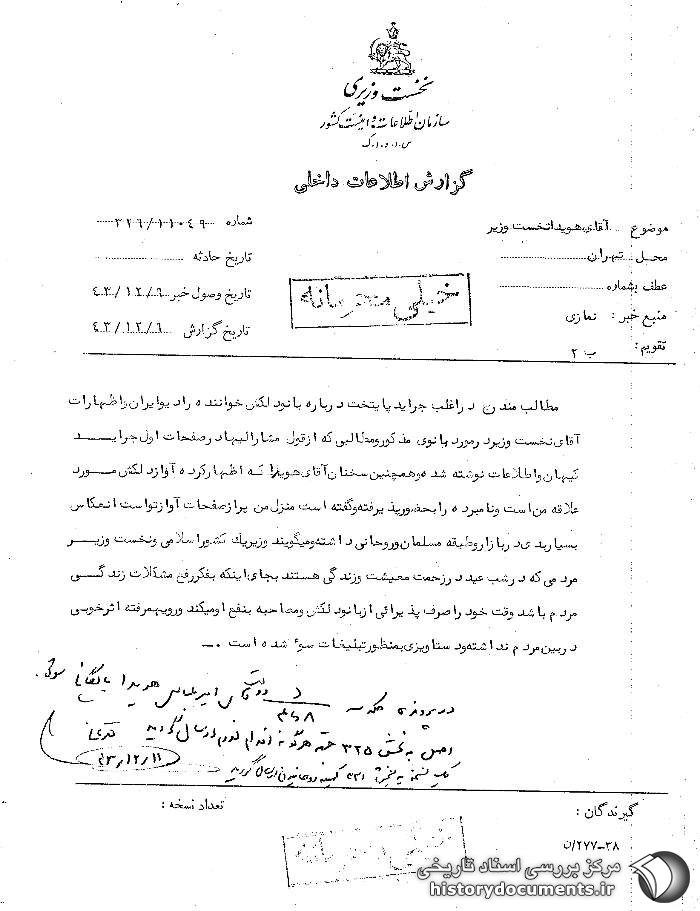 نخست وزیری
سازمان اطلاعات و امنیت کشور
س.ا.و.ا.ک
گزارش اطلاعات داخلی
موضوع آقای هویدا نخست وزیر
شماره ۳۲۶/۱۱۰۴۹
محل تهران
تاریخ حادثه
عطف بشماره
تاریخ وصول خبر ۴۳/۱۲/۶
خیلی محرمانه
منبع خبر : نمازی
تاریخ گزارش ۴۳/۱۲/۶
تقویم : ب ۲
مطالب مندرج در اغلب جراید پایتخت درباره بانو دلکش خواننده رادیو ایران و اظهارات
آقای نخست وزیر در مورد بانوی مذکور و مطالبی که از قول مشارالیها در صفحات اول جراید
کیهان و اطلاعات نوشته شده و همچنین سخنان آقای هویدا که اظهار کرده آواز دلکش مورد
علاقه من است و نامبرده را بحضور پذیرفته و گفته است منزل من پر از صفحات آواز تو است انعکاس
بسیار بدی در بازار و طبقه مسلمان و روحانی داشته و میگویند وزیر یک کشور اسلامی و نخست وزیر
مردمی که در شب عید در زحمت معیشت و زندگی هستند بجای اینکه بفکر رفع مشکلات زندگی
مردم باشد وقت خود را صرف پذیرائی از بانو دلکش و مصاحبه بنفع او میکند و رویهمرفته اثر خوبی
در بین مردم نداشته و دستاویزی بمنظور تبلیغات سوء شده است .
در پرونده امیر عباس هویدا بایگانی شود.
اصل به بخش ۳۲۵ جهت هرگونه اقدام لازم ارسال گردید
۴۳/۱۲/۱۱
گیرندگان :
تعداد نسخه :
۳۸-۲۷۷/ن
خیلی محرمانه
مرکز بررسی اسناد تاریخی
historydocuments.ir